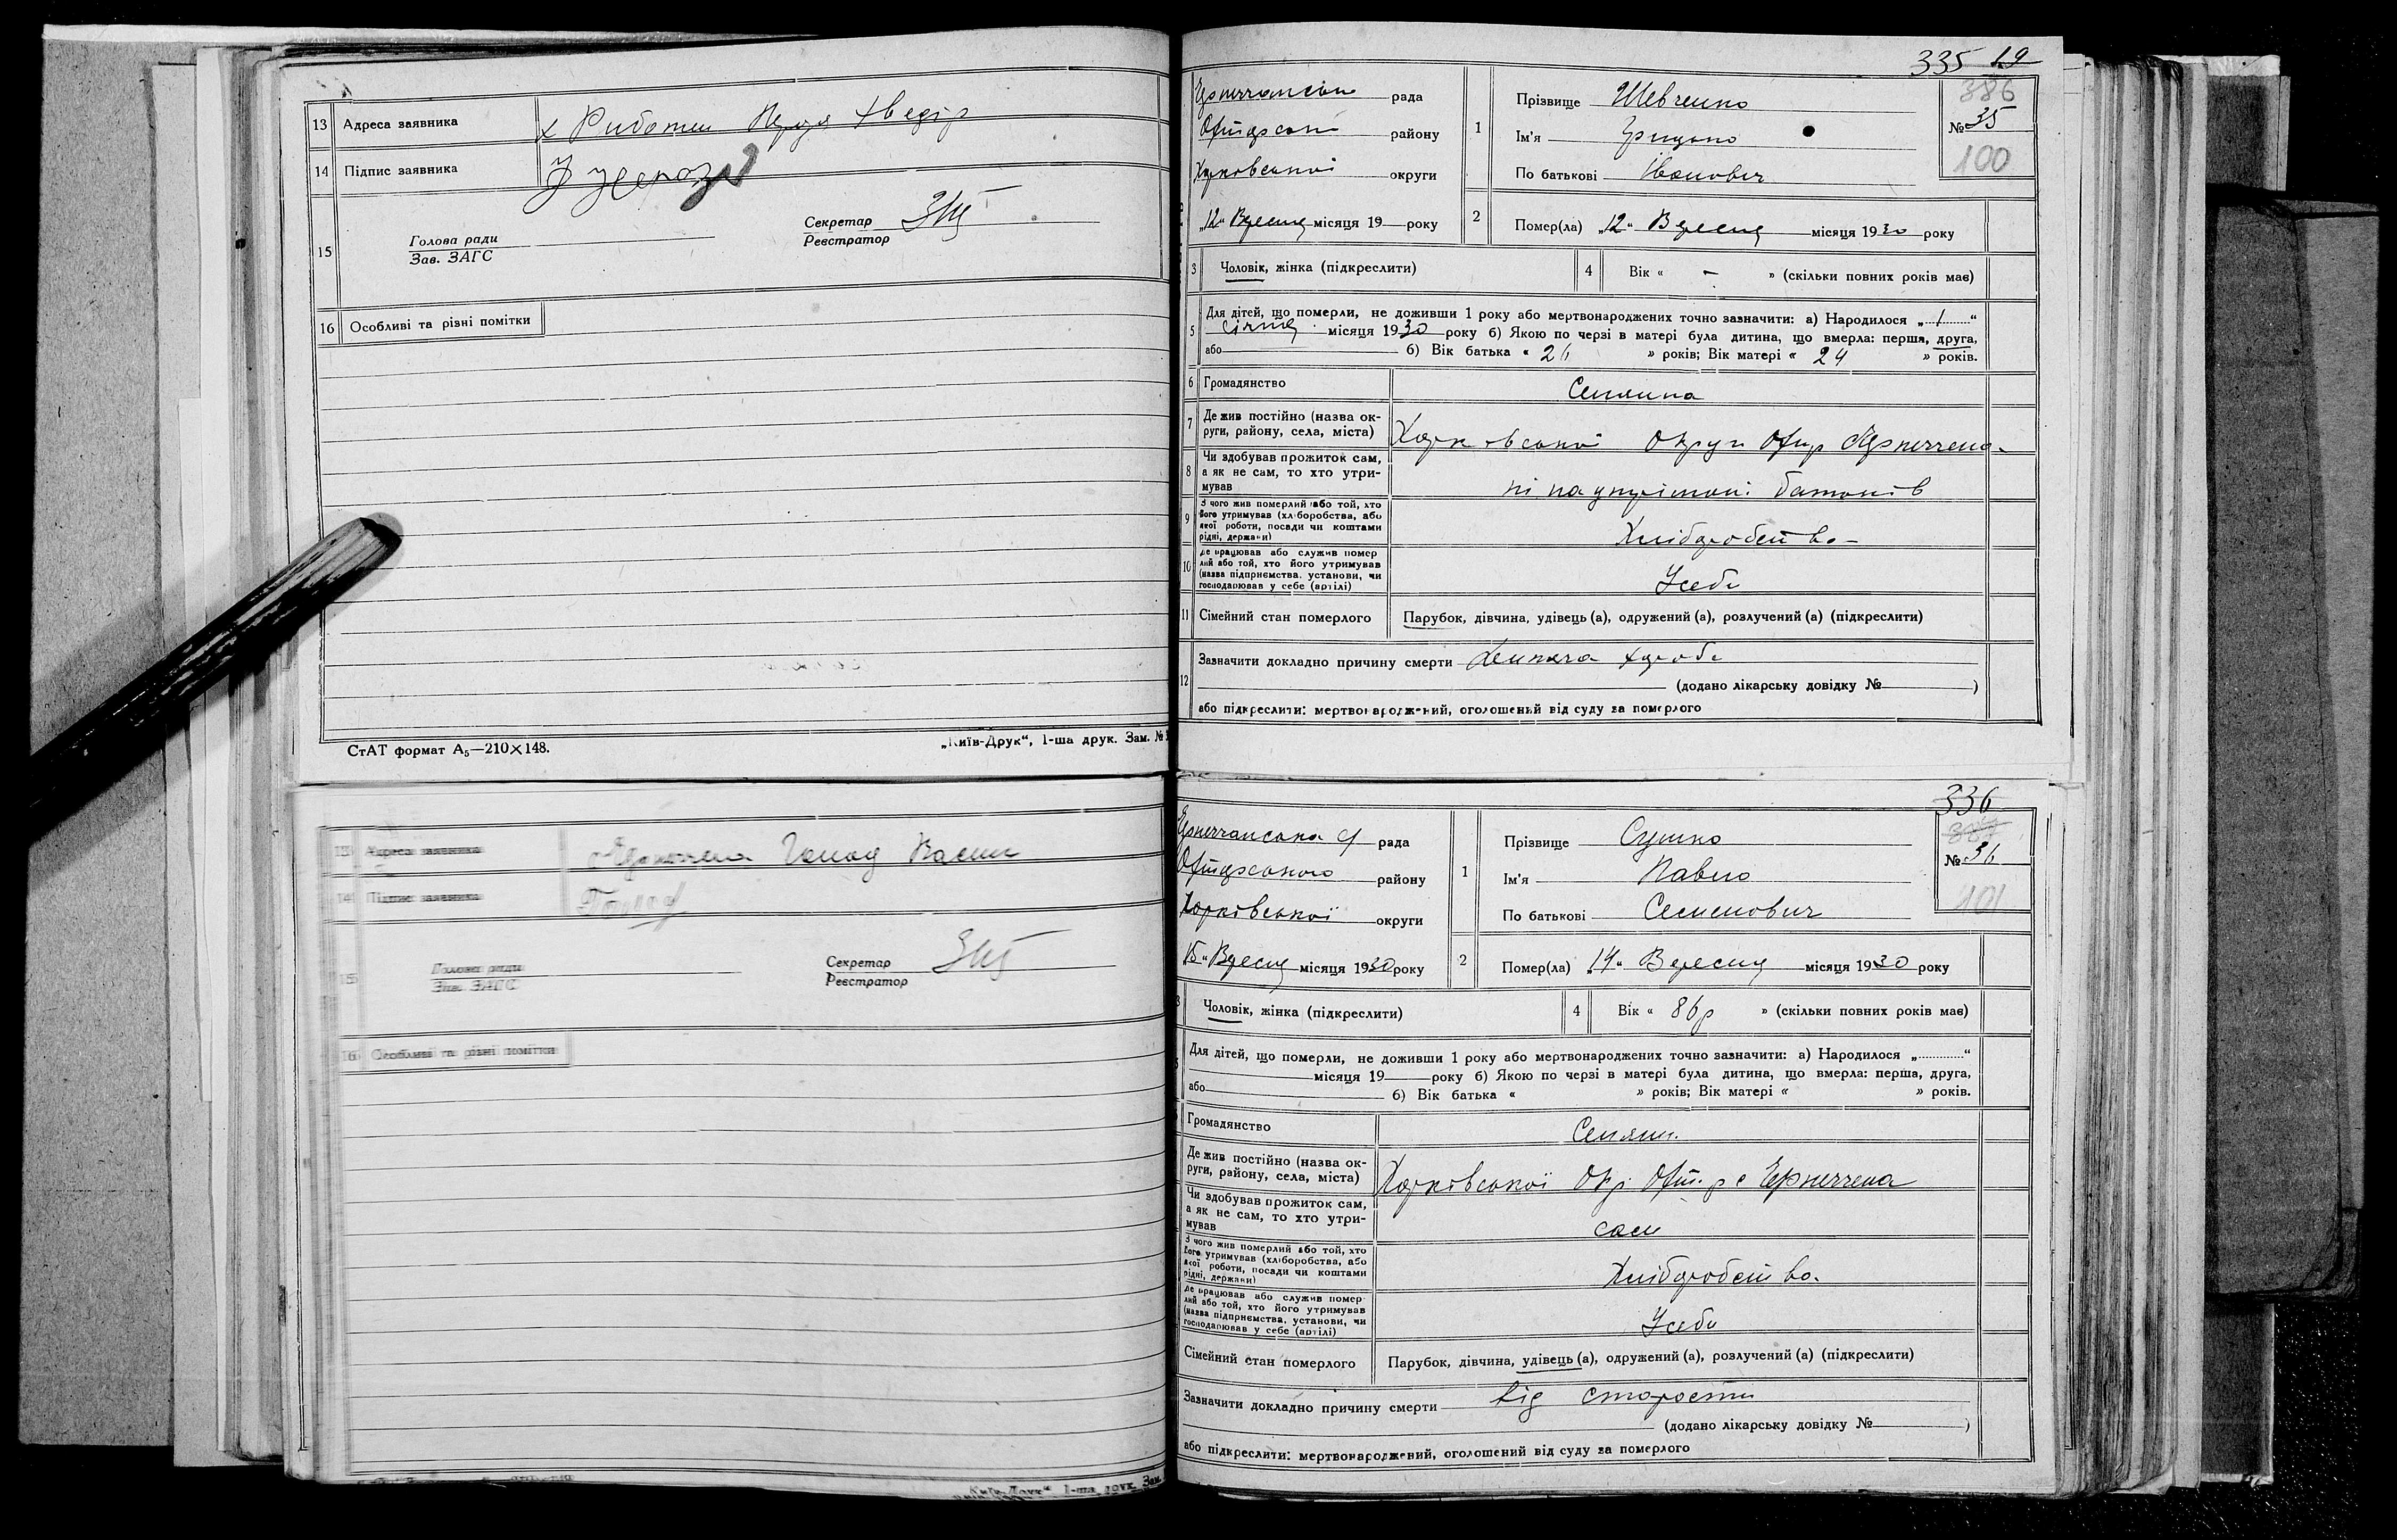 13 Адреса заявника х Риботин
14 Підпис заявника
15 Голова ради
Зав. ЗАГС
Секретар
Реєстратор
16 Особливі та різні помітки
СтАТ формат А₅—210×148.
„Київ-Друк“, 1-ша друк. Зам. №
13 Адреса заявника
14 Підпис заявника
15 Голова ради
Зав. ЗАГС
Секретар
Реєстратор
16 Особливі та різні помітки
„Київ-Друк“, 1-ша друк. Зам.
335 19
рада
району
Харковської округи
„12“ Вересня місяця 19 року
1 Прізвище Шевченко
Ім'я Грицько
По батькові Іванович
386
№ 35
100
2 Помер(ла) „12“ Вересня місяця 1930 року
3 Чоловік, жінка (підкреслити)
4 Вік « — » (скільки повних років має)
5 Для дітей, що померли, не доживши 1 року або мертвонароджених точно зазначити: а) Народилося „1“
Січня місяця 1930 року б) Якою по черзі в матері була дитина, що вмерла: перша, друга,
або б) Вік батька « 26 » років; Вік матері « 24 » років.
6 Громадянство Селянина
7 Де жив постійно (назва округи, району, села, міста) Харківської Округи
8 Чи здобував прожиток сам, а як не сам, то хто утримував ні на утрімані батьків
9 З чого жив померлий або той, хто його утримував (хліборобства, або якої роботи, посади чи коштами рідні, держави) Хліборобство
10 Де працював або служив померлий або той, хто його утримував (назва підприємства, установи, чи господарював у себе (артілі) Усебе
11 Сімейний стан померлого Парубок, дівчина, удівець (а), одружений (а), розлучений (а) (підкреслити)
12 Зазначити докладно причину смерти
(додано лікарську довідку № )
або підкреслити: мертвонароджений, оголошений від суду за померлого
336
рада
району
Харківської округи
15“ Вересня місяця 1930 року
1 Прізвище Сушко
Ім'я Павло
По батькові Семенович
387
№ 36
101
2 Помер(ла) „14“ Вересня місяця 1930 року
Чоловік, жінка (підкреслити)
4 Вік « 86р » (скільки повних років має)
Для дітей, що померли, не доживши 1 року або мертвонароджених точно зазначити: а) Народилося „ “
місяця 19 року б) Якою по черзі в матері була дитина, що вмерла: перша, друга,
або б) Вік батька « » років; Вік матері « » років.
Громадянство Селянин.
Де жив постійно (назва округи, району, села, міста) Харківської Окр.
Чи здобував прожиток сам, а як не сам, то хто утримував сам
З чого жив померлий або той, хто його утримував (хліборобства, або якої роботи, посади чи коштами рідні, держави) Хліборобство.
Де працював або служив померлий або той, хто його утримував (назва підприємства, установи, чи господарював у себе (артілі) Усебе
Сімейний стан померлого Парубок, дівчина, удівець (а), одружений (а), розлучений (а) (підкреслити)
Зазначити докладно причину смерти від старости
(додано лікарську довідку № )
або підкреслити: мертвонароджений, оголошений від суду за померлого